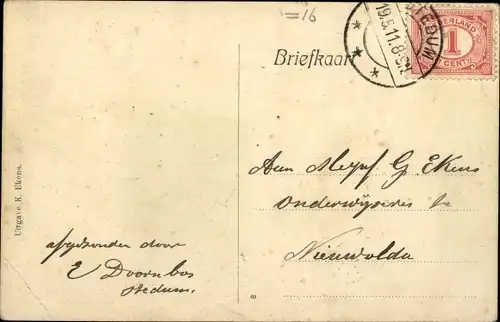 =16
STEDUM
19.5.11.8-9V
NEDERLAND
1
CENT
Briefkaart
Aan Mejuf G. Ekens
Onderwijzeres te
Nieuwolda
Uitgave K. Ekens.
afgezonden door
E Doornbos
Stedum.